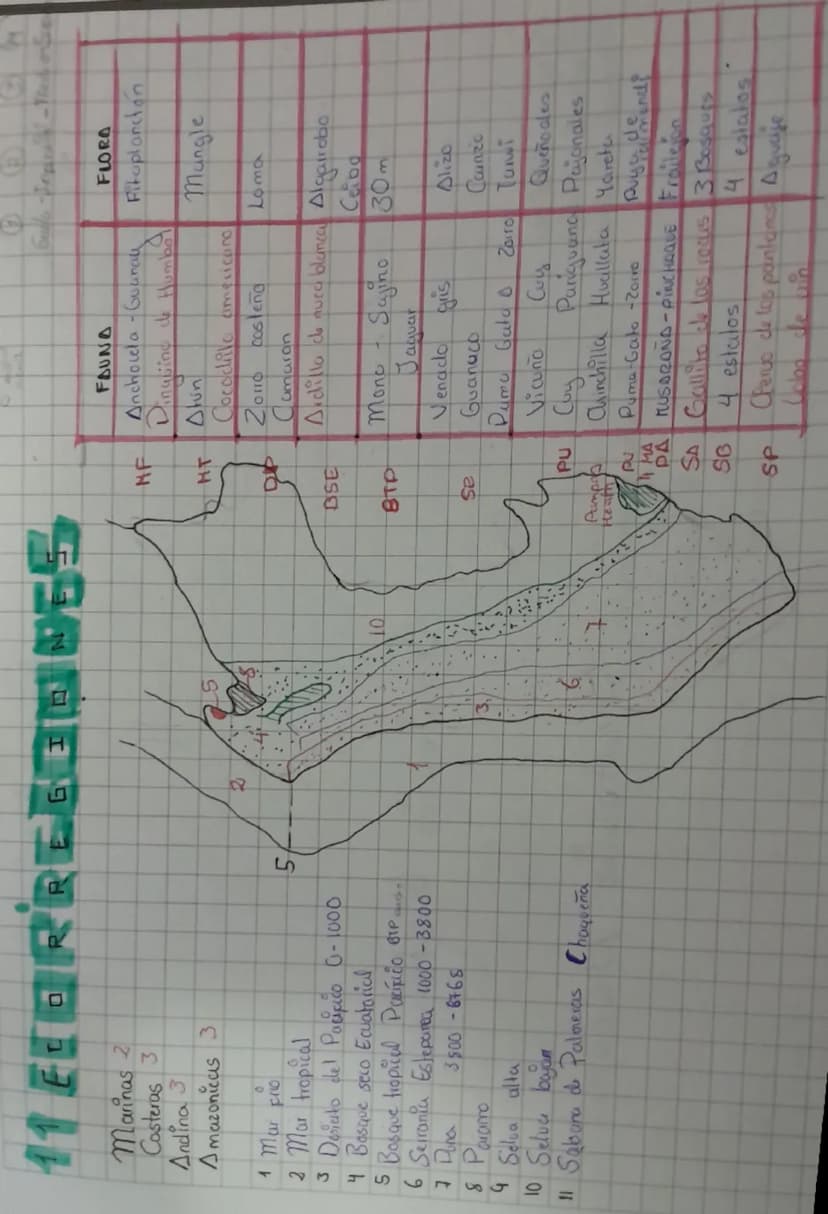 11 ECORREGIONES
Marinas 2
Costeras 3
Andina 3
Amazonicas 3
1 Mar frio
2 Mar tropical
3 Desierto del Pacifico 0-1000
4 Bosque seco Ecuatorial
5 Bosque tropical Pacifico BTP
6 Serrania Esteparia 1000-3800
7 Puna 3800-6768
8 Paramo
9 Selva alta
10 Selva bajan
11 Sabana de Palmeras Chaqueña
5
2
4
5
8
1
3
10
6
7
MF
MT
DP
BSE
BTP
SE
PU
Pampas Heath
PU
MA
PA
SA
SB
SP
FAUNA FLORA
Anchoveta - Guanay Fitoplancton
Pingüino de Humbol
Ahin Mangle
Cocodrilo americano
Zorro costeño Loma
Camaron
Ardilla de nuca blanca Algarrobo
Ceibo
Mono - Sajino 30m
Jaguar
Venado gris Aliso
Guanaco Carrizo
Puma Gato Δ Zorro Tarwi
Vicuña Cuy Queñoales
Cuy Pariguana Pajonales
Chinchilla Huallata Yareta
Puma-Gato-Zorro Puya de
MUSARAÑA-PINCHAQUE Frailejon
Gallito de las rocas 3 Bosques
4 estalos 4 estalos
Ciervo de los pantanos Aguaje
Lobo de crin